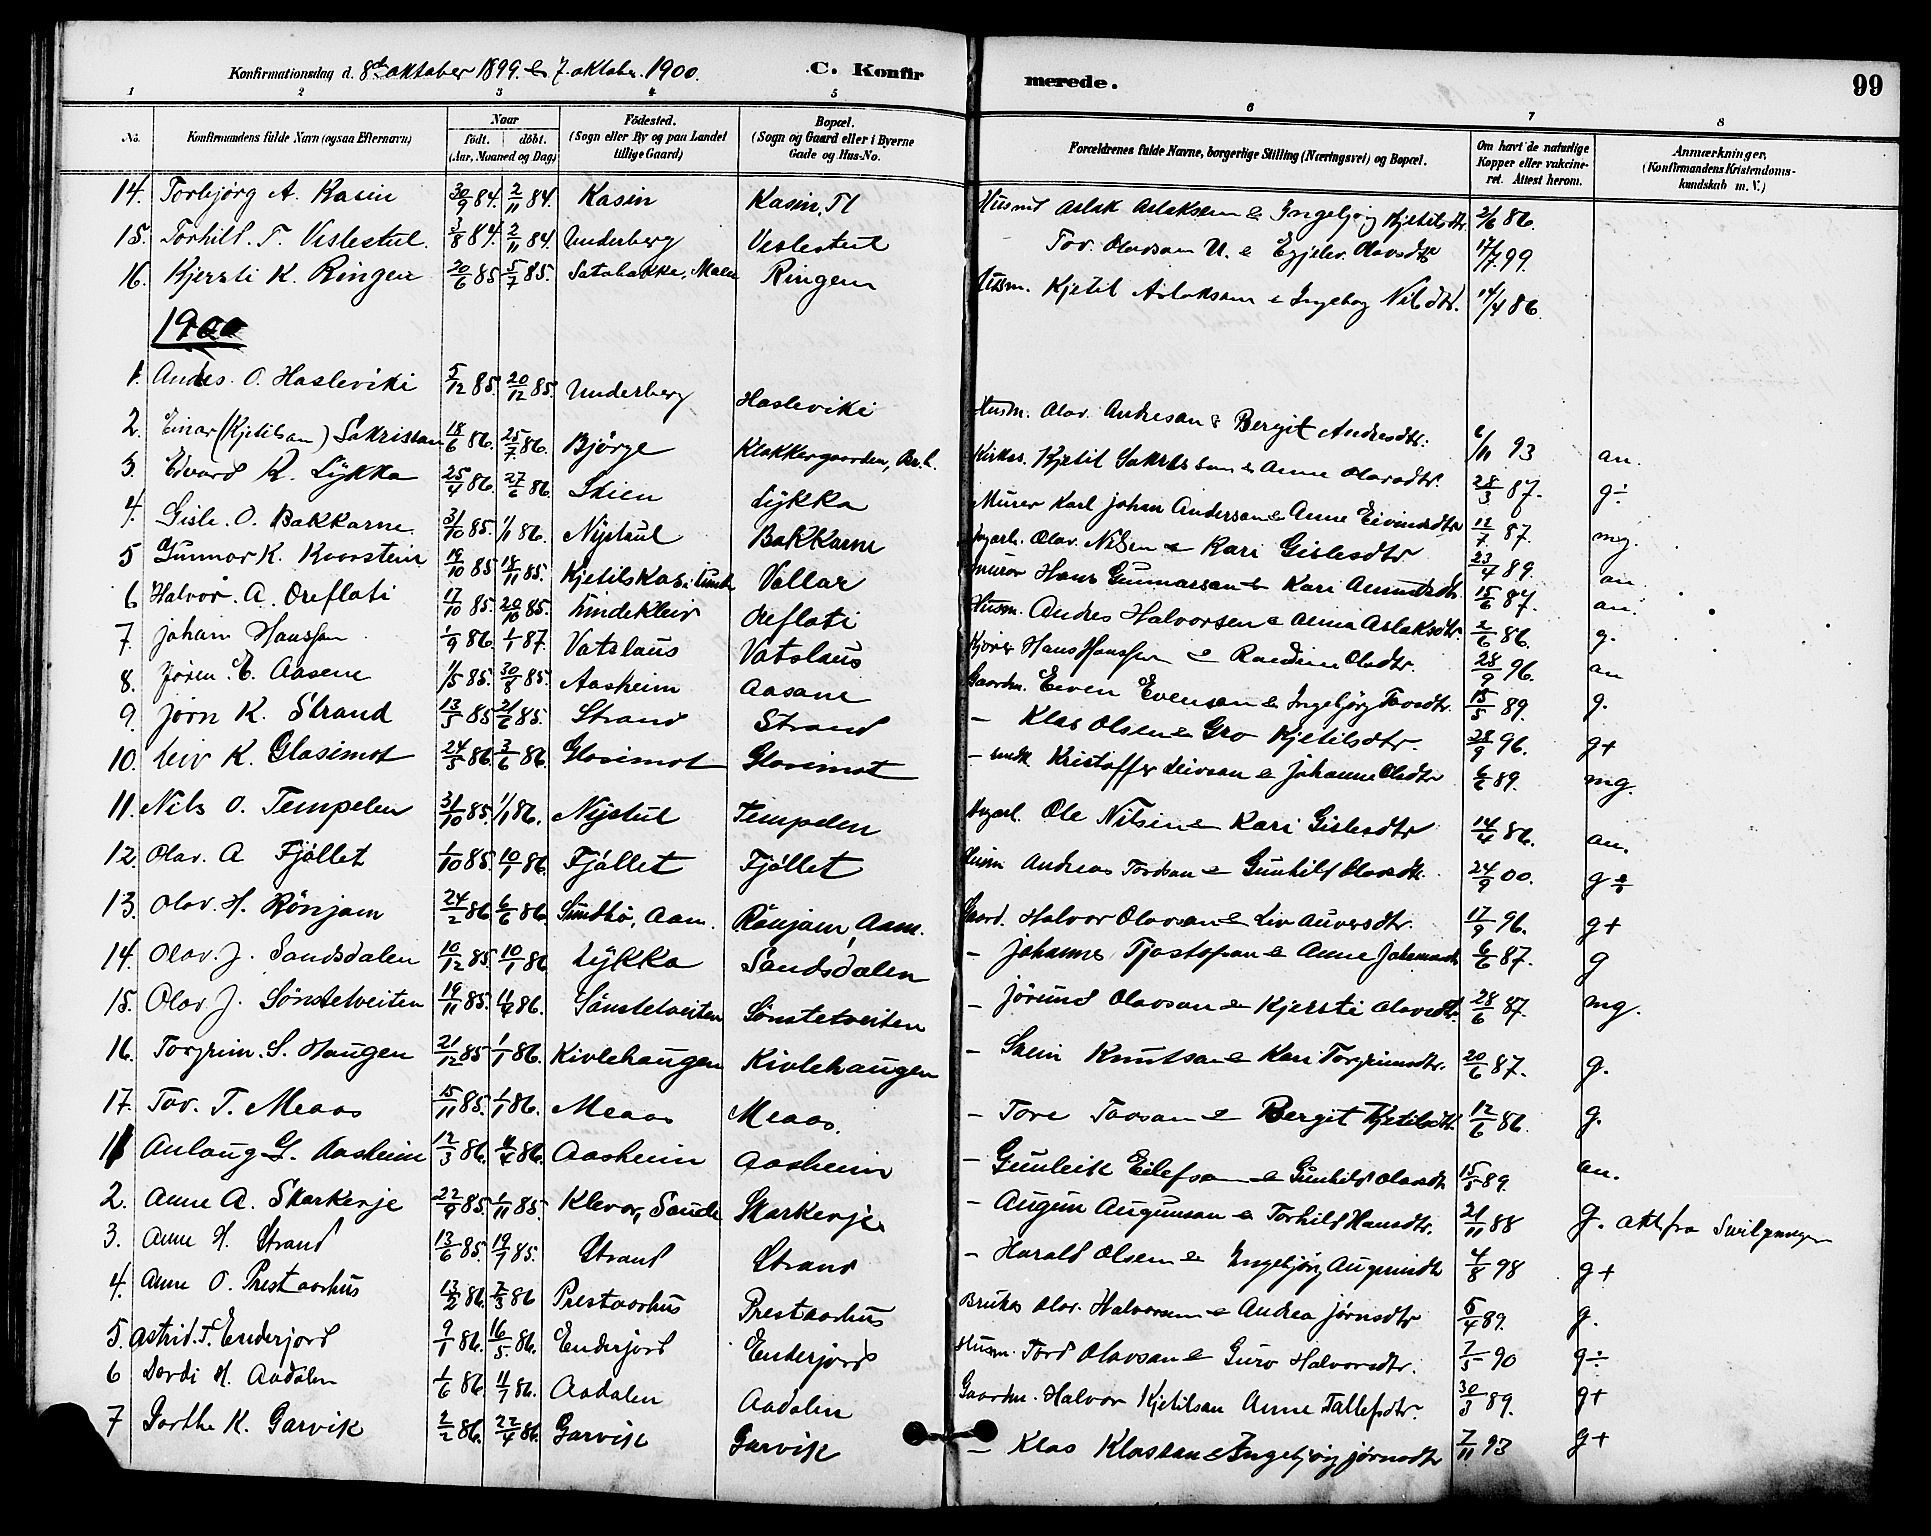 Konfirmationsdag d. 8de oktober 1899. & 7. oktober. 1900. C. Konfirmerede. 99
1 2 3 4 5 6 7 8
No. Konfirmandens fulde Navn (ogsaa Efternavn) Naar født. døbt. (Aar, Maaned og Dag) Fødested. (Sogn eller By og paa Landet tillige Gaard) Bopæl. (Sogn og Gaard eller i Byerne Gade og Hus-No. Forældrenes fulde Navne, borgerlige Stilling (Næringsvei) og Bopæl. Om havt de naturlige Kopper eller vaksineret. Attest herom. Anmærkninger, (Konfirmandens Kristendomskundskab m. V.)
14. Torbjørg A. Kasin 30/9 84. 2/11 84. Kasin Kasin, Tl Husmd Aslak Aslaksen & Ingebjørg Kjetilsdtr. 2/6 86.
15. Torhild. T. Veslestul. 3/8 84. 2/11 84. Underberg Veslestul Tov. Olavsan U. & Egjelev. Olavsdtr 17/7. 99.
16. Kjersti K. Ringen 20/6 85 5/7 85. Satabakka, Maen Ringen Husm. Kjetil Aslaksen & Ingebog Nilsdtr. 14/4 86.
1900
1. Andres. O. Hasleviki 5/12 85. 20/12 85. Underberg Hasleviki Husm. Olav. Andresan & Bergit Andresdtr. 6/11 93 an.
2. Einar (Kjetilsan) Sakrissan 18/6 86. 25/7 86. Bjørge Klokkergaarden, Bø.k. Kirkes. Kjetil Sakrissan & Anne Olavsdtr. 28/3 87. g÷
3. Edvard K. Lykka 25/4 86. 27/6 86. Skien Lykka Murer Karl Johan Andersen & Anne Eivindsdtr 12/7 87. mg.
4. Gisle. O. Bakkarne 31/10 85. 1/1 86. Nystul Bakkarne Olav. Nilsen & Kari Gislesdtr 23/4 89. an
5 Gunnar K. Kaasstein 19/10 85 18/11 85. Vallar murer Hans Gunnarsan & Kari Amundsdtr 15/6 87. an.
6 Halvor. A. Oreflati 17/10 85. 20/10 85. Lindekleiv Oreflati Husm. Andres Halvorsen & Anna Aslaksdtr. 2/6 86. g.
7. Johan Hanssen 1/9 86. 1/1 87. Vatslaus Vatslaus Hans Hanssen & Olsdtr. 28/9 96. an
8. Jøren. E. Aasene 1/5 85. 30/8 85. Aasheim Aasane Gaardm. Even Evensen & Ingebjørg Tovsdtr. 15/5 89. g.
9 Jørn K. Strand 13/5 85 21/6 85. Strand Strand – Klas Olsen & Gro Kjetilsdtr. 28/9 96. g+
10. Leiv K. Glosimot 24/5 86. 3/6 86. Glosimot Glosimot – Kristoffer Leivsan & Johanne Olsdtr 6/2 89. mg.
11. Nils O. Tempelen 31/10 85. 1/1 86. Nystul Tempelen Ole Nilsen & Kari Gislesdtr 14/4 86. an.
12. Olav. A Fjøllet 1/10 85. 10/1 86. Fjøllet Fjøllet Husm Andreas Tordsan & Gunhild Olavsdtr. 24/9 00. g÷
13. Olav. H. Rønjam 24/2 86 6/6 86. Sundbø, Aam. Rønjam, Aam. Gaard. Halvor Olavsan & Liv Auversdtr. 17/9 96. g+
14. Olav. J. Sandsdalen 10/12 85. 10/1 86 Lykka Sandsdalen – Johannes Tjostofsan & Anne Johannesdtr 6/6 87. g
15. Olav J. Sønstetveiten 19/11 85. 11/4 86. Sønstetveiten Sønstetveiten – Jørund Olavsan & Kjersti Olavsdtr. 28/6 87. mg.
16. Torgrim. S. Haugen 21/12 85 1/1 86. Kivlehaugen Kivlehaugen – Svein Knutsan & Kari Torgrimsdtr. 20/6 87. g.
17. Tov. T. Meaas 15/11 85. 1/1 86. Meaas Meaas. – Tore Tovsan & Bergit Kjetilsdtr. 12/6 86. g.
1 Anlaug G. Aasheim 12/3 86. 11/4 86. Aasheim Aasheim – Gunleik Eilefsan & Gunhild Olavsdtr 15/5 89. an.
2. Anne A. Skarkerje 22/9 85. 1/11 85. Klevar, Saude Skarkerje – Augun Augunsan & Torhild Hansdtr. 21/11 88 g. att fra
3. Anne H. Strand 13/6 85. 19/7 85. Strand Strand – Harald Olsen & Ingebjørg Augundsdtr 4/8 98 g+
4. Anne O. Prestaarhus 13/2 86. 7/3 86 Prestaarhus Prestaarhus Bruker Olav. Halvorsen & Andrea Jørnsdtr 5/4 89. g.
5. Astrid. T. Enderjord 9/1 86. 16/5 86. Enderjord Enderjord Husm. Tord Olavsan & Guro Halvorsdtr. 7/5 90 g÷
6 Dordi H. Aadalen 1/6 86 11/7 86. Aadalen Aadalen Gaardm. Halvor Kjetilsan Anne Tallefsdtr. 30/3 89. g+
7 Dorthe K. Garvik 2/2 86. 22/4 86. Garvik Garvik – Klas Klassan & Ingebjørg Jørnsdtr 7/11 93 g+